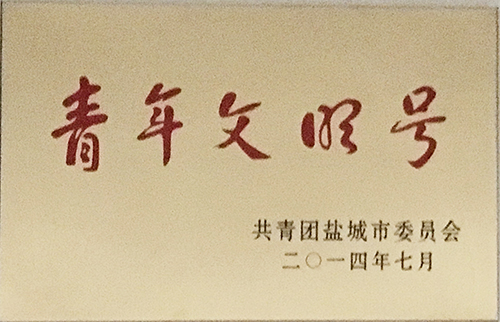 青年文明号
共青团盐城市委员会
二〇一四年七月